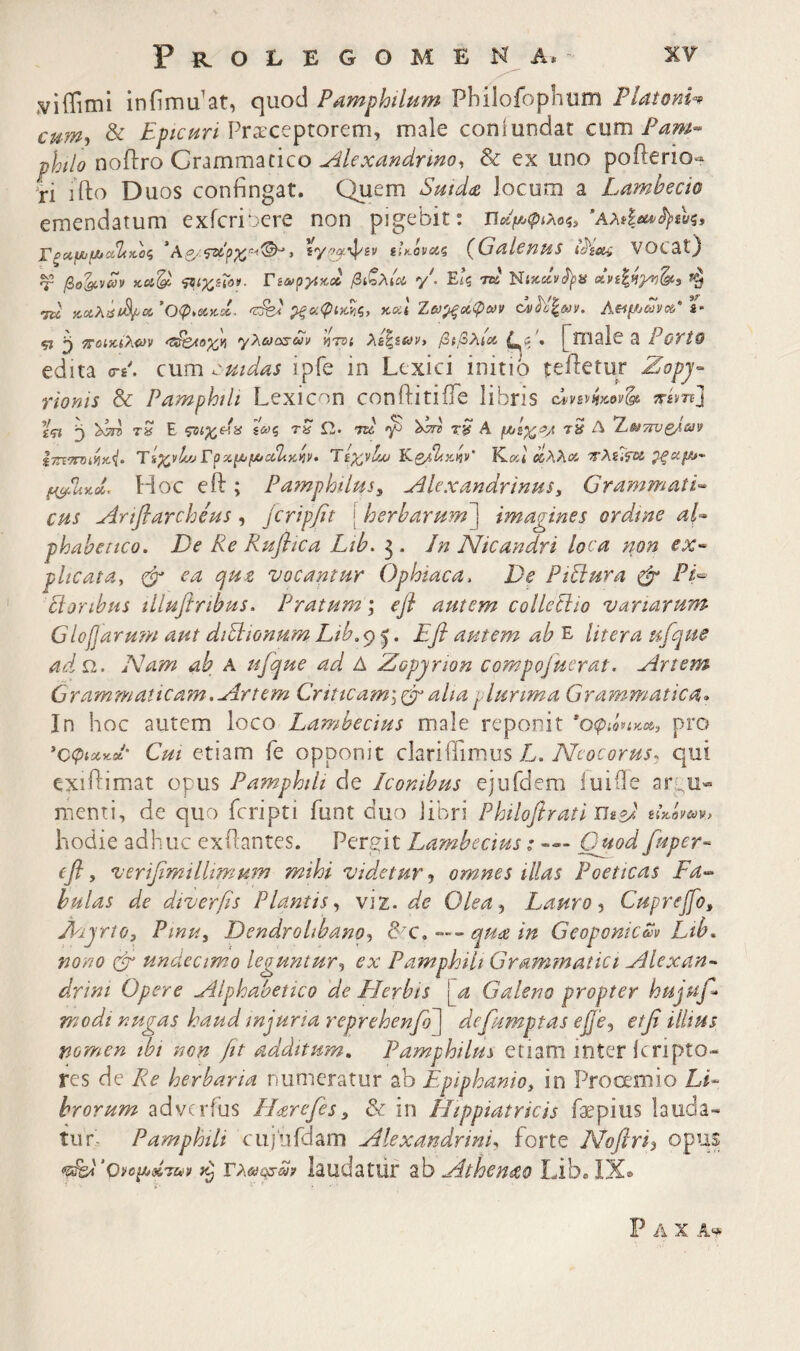 PROLEGOMENA. XV
viſſimi inſimulat, quod Pamphilum Philoſophum Platoni-
cum, & Epicuri Præceptorem, male confundat cum Pam-
philo noſtro Grammatico Alexandrino, & ex uno poſterio-
ri iſto Duos confingat. Quem Suidæ locum a Lambecio
emendatum exſcribere non pigebit: Πάμφιλος, Ἀλεξανδρεὺς,
Γραμματικὸς Ἀριστάρχειος, ἔγραψεν εἰκόνας (Galenus ἰδέας vocat)
τ βοτανῶν κατὰ στοιχεῖον. Γεωργικὰ βιβλία γ΄. Εἰς τὰ Νικάνδρου ἀνεξήγητα, καὶ
τὰ καλούμενα Ὀφιακά. περὶ γραφικῆς, καὶ Ζωγράφων ἐνδόξων. Λειμῶνα· ἔ-
στι ἢ ποικίλων περιοχὴ γλωσσῶν ἤτοι λέξεων, βιβλία ϟε΄. [male a Porto
edita σε΄. cum Suidas ipſe in Lexici initio teſtetur Zopy-
rionis & Pamphili Lexicon conſtitiſſe libris ἐννενήκοντα πέντε]
ἔστι ἢ ἀπὸ τοῦ Ε στοιχείου ἕως τοῦ Ω. τὰ γὰρ ἀπὸ τοῦ Α μέχρι τοῦ Δ Ζωπυρίων
ἐπεποιήκει. Τέχνην Γραμματικήν. Τέχνην Κριτικήν· Καὶ ἄλλα πλεῖστα γραμ-
ματικά. Hoc eſt; Pamphilus, Alexandrinus, Grammati-
cus Ariſtarcheus, ſcripſit [herbarum] imagines ordine al-
phabetico. De Re Ruſtica Lib. 3. In Nicandri loca non ex-
plicata, & ea quæ vocantur Ophiaca. De Pictura & Pi-
ctoribus illuſtribus. Pratum; eſt autem collectio variarum
Gloſſarum aut dictionum Lib. 95. Eſt autem ab E litera uſque
ad Ω. Nam ab A uſque ad Δ Zopyrion compoſuerat. Artem
Grammaticam. Artem Criticam; & alia plurima Grammatica.
In hoc autem loco Lambecius male reponit Ὀφιόνικα, pro
Ὀφιακά· Cui etiam ſe opponit clariſſimus L. Neocorus, qui
exiſtimat opus Pamphili de Iconibus ejuſdem fuiſſe argu-
menti, de quo ſcripti ſunt duo libri Philoſtrati Περὶ εἰκόνων,
hodie adhuc exſtantes. Pergit Lambecius: --- Quod ſuper-
eſt, veriſimillimum mihi videtur, omnes illas Poeticas Fa-
bulas de diverſis Plantis, viz. de Olea, Lauro, Cupreſſo,
Myrto, Pinu, Dendrolibano, &c. --- quæ in Geoponicῶν Lib.
nono & undecimo leguntur, ex Pamphili Grammatici Alexan-
drini Opere Alphabetico de Herbis [a Galeno propter hujuſ-
modi nugas haud injuria reprehenſo] deſumptas eſſe, etſi illius
nomen ibi non ſit additum. Pamphilus etiam inter ſcripto-
res de Re herbaria numeratur ab Epiphanio, in Proœmio Li-
brorum adverſus Hæreſes, & in Hippiatricis ſæpius lauda-
tur. Pamphili cujuſdam Alexandrini, forte Noſtri, opus
περὶ Ὀνομάτων καὶ Γλωσσῶν laudatur ab Athenæo Lib. IX.
PAXA-